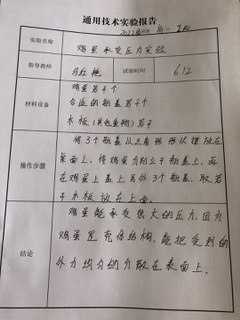 通用技术实验报告
实验名称 鸡蛋承受压力实验
指导教师 实验时间 6/2
材料设备
鸡蛋若干个
合适的瓶盖若干个
木板(其他重物)若干
操作步骤
将3个鸡蛋以三角形形状摆放在
桌面上,将鸡蛋分别立于瓶盖上,再
在鸡蛋上盖上另外3个瓶盖,取若
干木板放在上面。
结论
鸡蛋能承受很大的压力,因为
鸡蛋是壳体结构,能把受到的
外力均匀的分散在表面上。